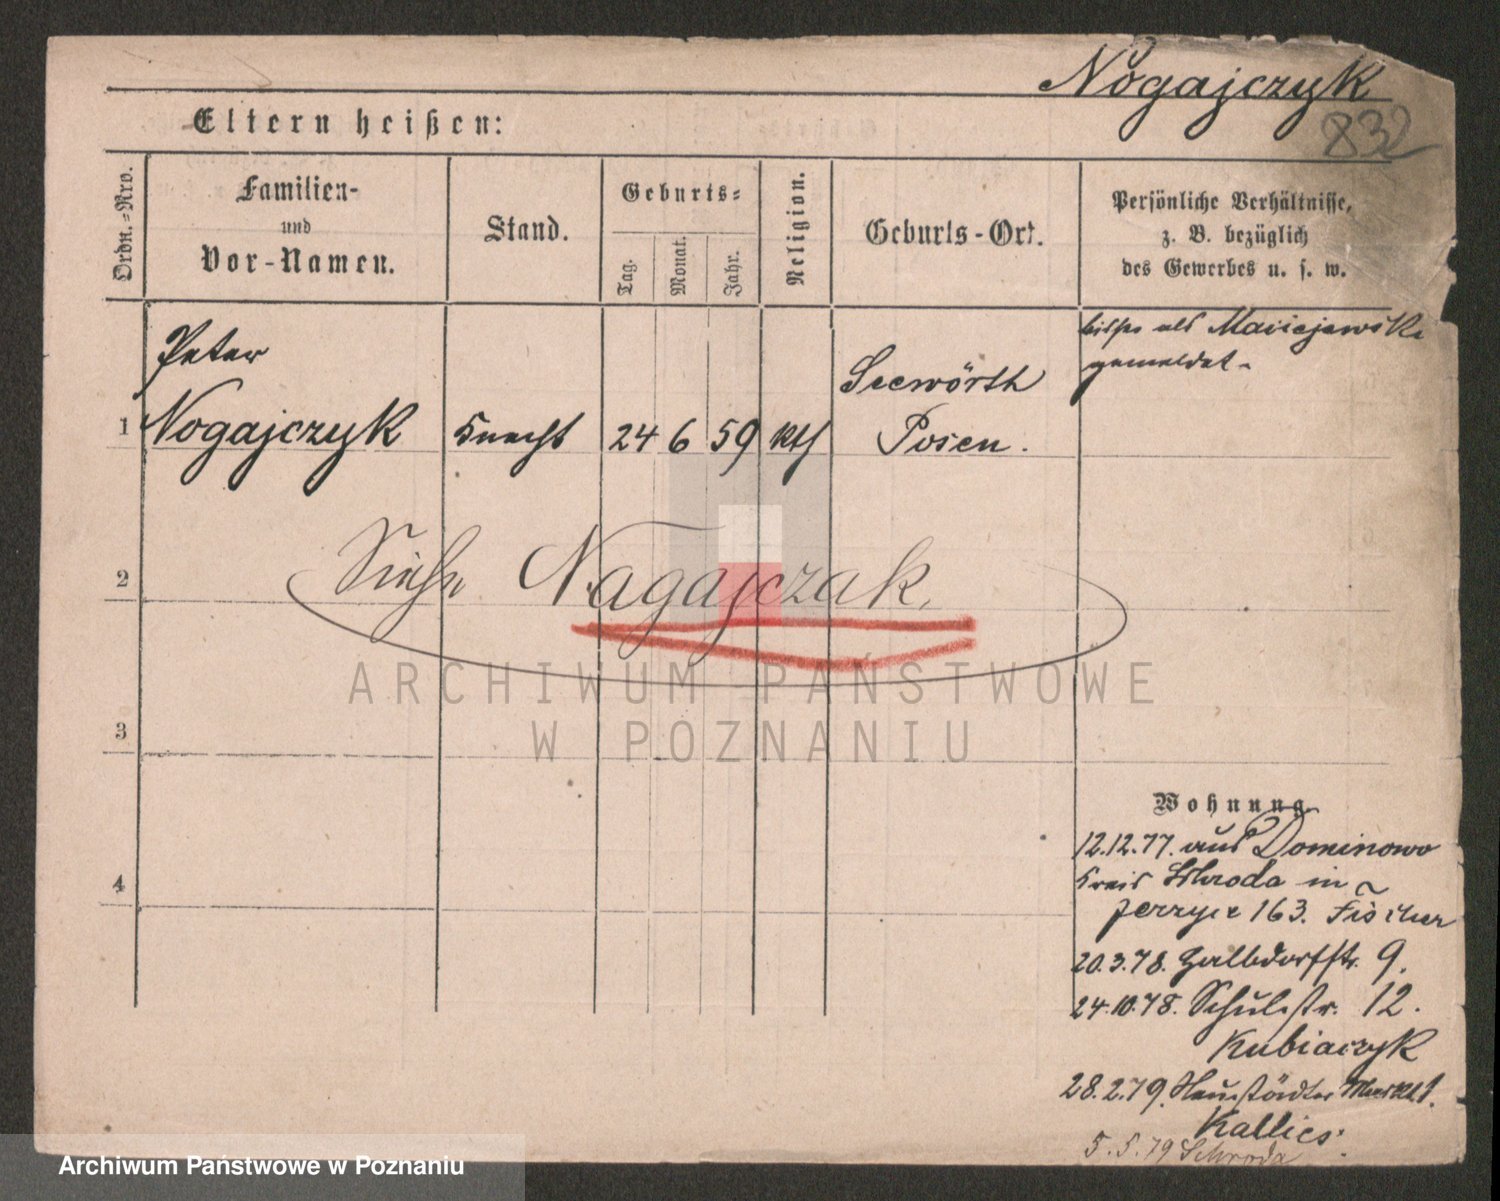 Nogajczyk
832
Eltern heißen:
Ordn.=Nro.
Familien-
und
Vor-Namen.
Stand.
Geburts=
Tag.
Monat.
Jahr.
Religion.
Geburts-Ort.
Persönliche Verhältnisse,
z. B. bezüglich
des Gewerbes u. s. w.
1
Peter
Nogajczyk
Knecht
24
6
59
kth
Seewörth
Posen.
bisher als Maciejewski
gemeldet.
2
Siehe Nagajczak.
3
4
ARCHIWUM PAŃSTWOWE
W POZNANIU
Wohnung
12.12.77. aus Dominowo
Kreis Schroda in
Jerzyce 163. Fischer
20.3.78. Halbdorfstr. 9.
24.10.78. Schulstr. 12.
Kubiaczyk
28.2.79. Neustädter Markt 1.
Kallies.
5.5.79 Schroda
Archiwum Państwowe w Poznaniu